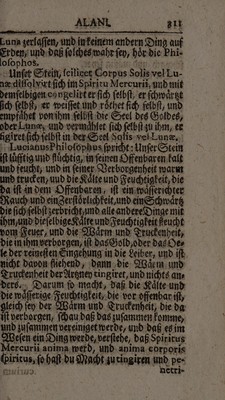 ALANI. 311
Lunæ zerlassen, und in keinem andern Ding auf
Erden, und daß solches wahr sey, hör die Phi-
losophos.
Unser Stein, scilicet Corpus Solis vel Lu-
næ dissolvirt sich im Spiritu Mercurii, und mit
demselbigen congelirt er sich selbst, er schwärtzt
sich selbst, er weisset und röthet sich selbst, und
empfähet von ihm selbst die Seel des Goldes,
oder Lunæ, und vermählet sich selbst zu ihm, er
figiret sich selbst in der Seel Solis vel Lunæ.
Lucianus Philosophus spricht: Unser Stein
ist lüfftig und flüchtig, in seinen Offenbaren kalt
und feucht, und in seiner Verborgenheit warm
und trucken, und die Kälte und Feuchtigkeit, die
da ist in dem Offenbaren, ist ein wässerichter
Rauch und ein Zerstörlichkeit, und ein Schwärtz
die sich selbst zerbricht, und alle andere Dinge mit
ihm, und dieselbige Kälte und Feuchtigkeit fleucht
vom Feuer, und die Wärm und Truckenheit,
die in ihm verborgen, ist das Gold, oder das Oe-
le der reinesten Eingehung in die Leiber, und ist
nicht davon fliehend, dann die Wärm und
Truckenheit der Artzney tingiret, und nichts an-
ders. Darum so macht, daß die Kälte und
die wässerige Feuchtigkeit, die vor offenbar ist,
gleich sey der Wärm und Truckenheit, die da
ist verborgen, schau daß das zusammen komme,
und zusammen vereiniget werde, und daß es im
Wesen ein Ding werde, verstehe, daß Spiritus
Mercurii anima werd, und anima corporis
spiritus, so hast du Macht zu tingiren und pe-
netri-